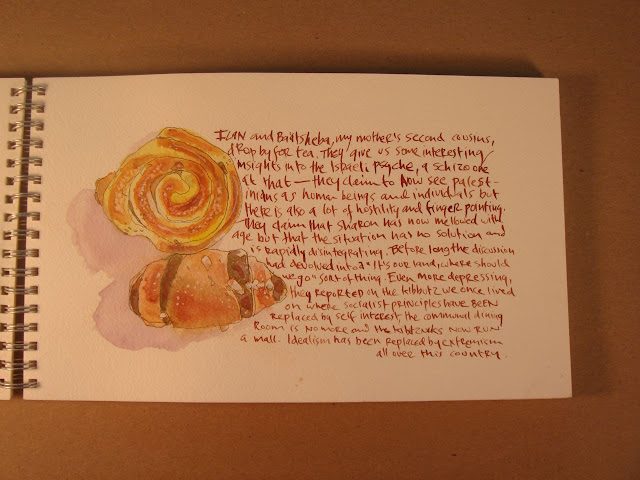 ILAN and Bathsheba, my mother's second cousins,
drop by for tea. They give us some interesting
insights into the Israeli psyche, a schizo one
at that — they claim to now see palest-
inians as human beings and individuals but
there is also a lot of hostility and finger pointing.
They claim that Sharon has now mellowed with
age but that the situation has no solution and
is rapidly disintegrating. Before long the discussion
had devolved into a "It's our land, where should
we go" sort of thing. Even more depressing,
they reported on the kibbutz we once lived
on where socialist principles have BEEN
replaced by self interest the communal dining
Room is no more and the kibbutzniks now RUN
a mall. Idealism has been replaced by extremism
all over this country.